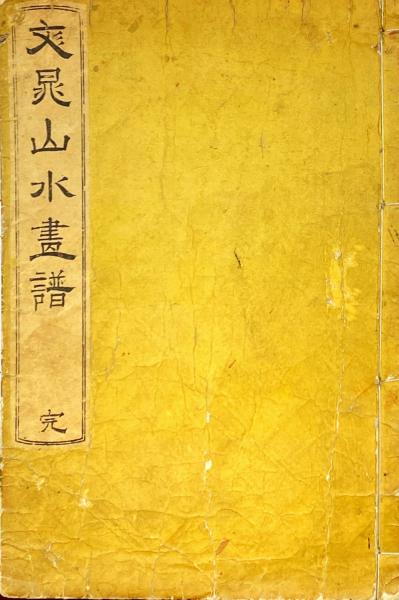 文晁山水畫譜
完